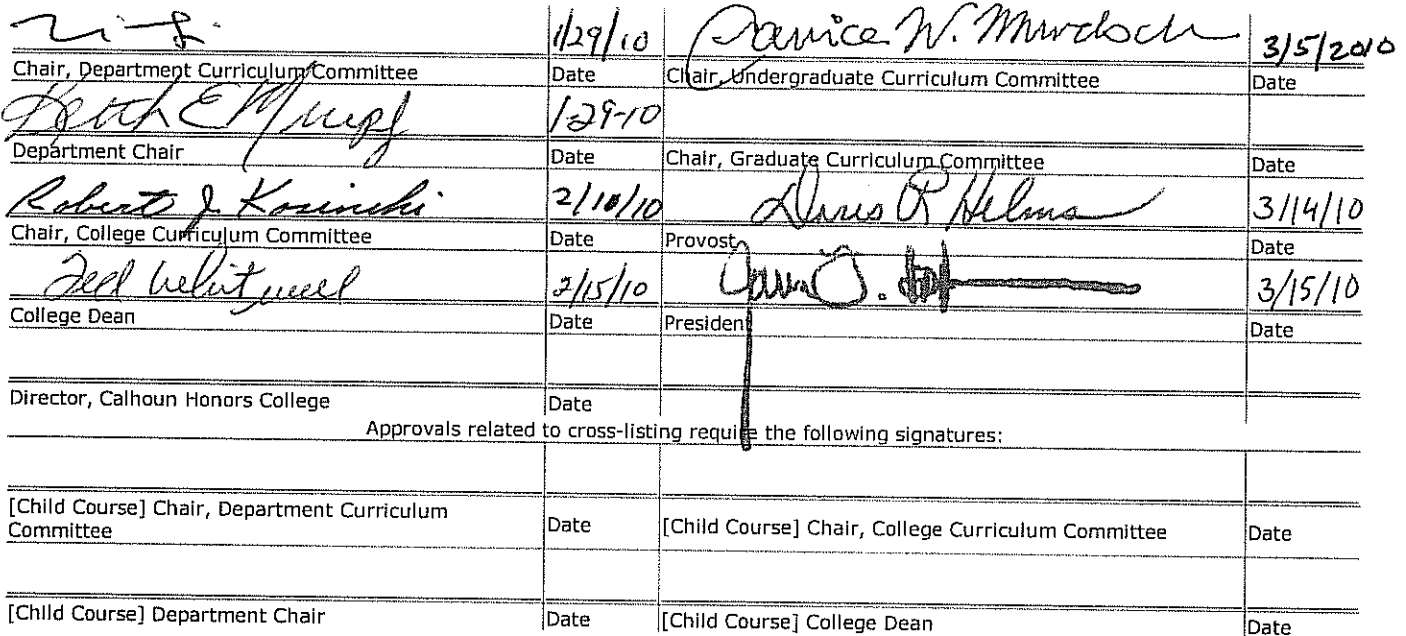 1/29/10 Janice W. Murdoch 3/5/2010
Chair, Department Curriculum Committee Date Chair, Undergraduate Curriculum Committee Date
1-29-10
Department Chair Date Chair, Graduate Curriculum Committee Date
Robert J. Kosinski 2/10/10 Doris R Helms 3/14/10
Chair, College Curriculum Committee Date Provost Date
2/15/10 3/15/10
College Dean Date President Date
Director, Calhoun Honors College Date
Approvals related to cross-listing require the following signatures:
[Child Course] Chair, Department Curriculum
Committee Date [Child Course] Chair, College Curriculum Committee Date
[Child Course] Department Chair Date [Child Course] College Dean Date